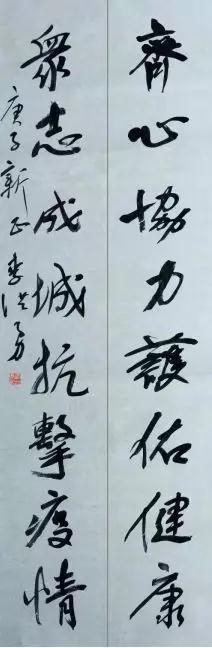 齊心協力護佑健康
衆志成城抗擊疫情
庚子新正 李洪勇